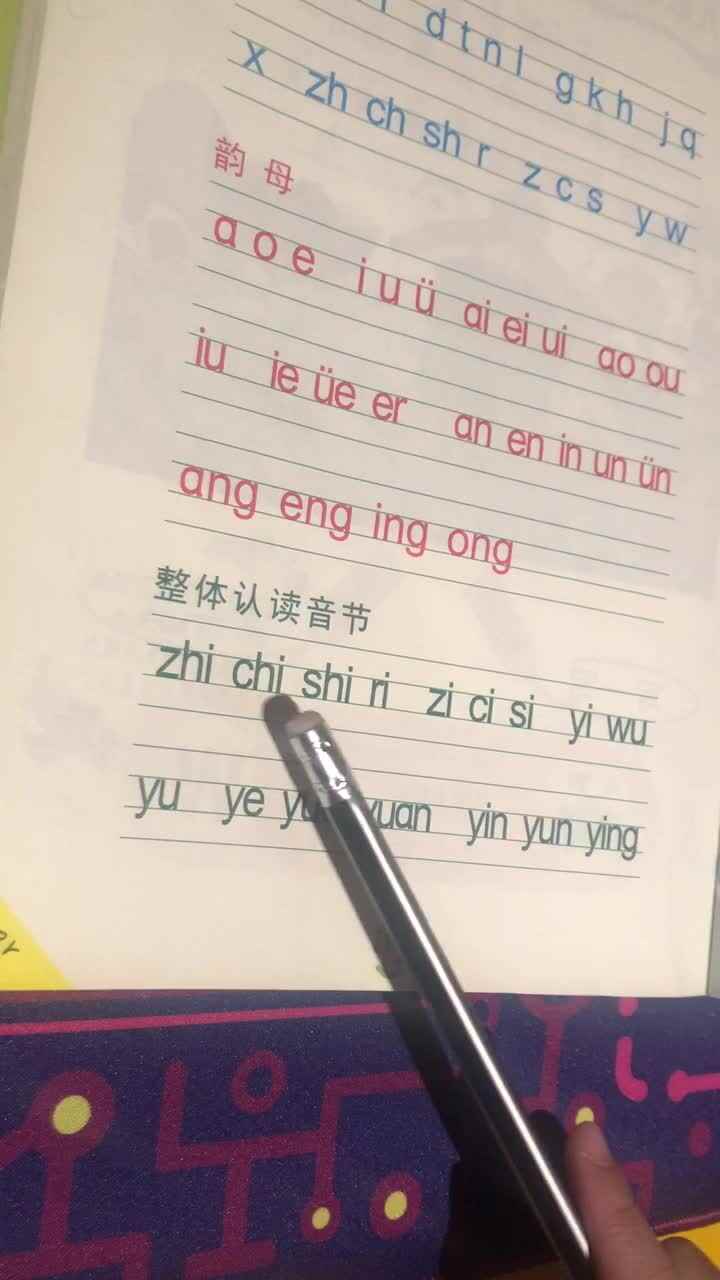 d t n l g k h j q
x zh ch sh r z c s y w
韵母
a o e i u ü ai ei ui ao ou
iu ie üe er an en in un ün
ang eng ing ong
整体认读音节
zhi chi shi ri zi ci si yi wu
yu ye yuan yin yun ying